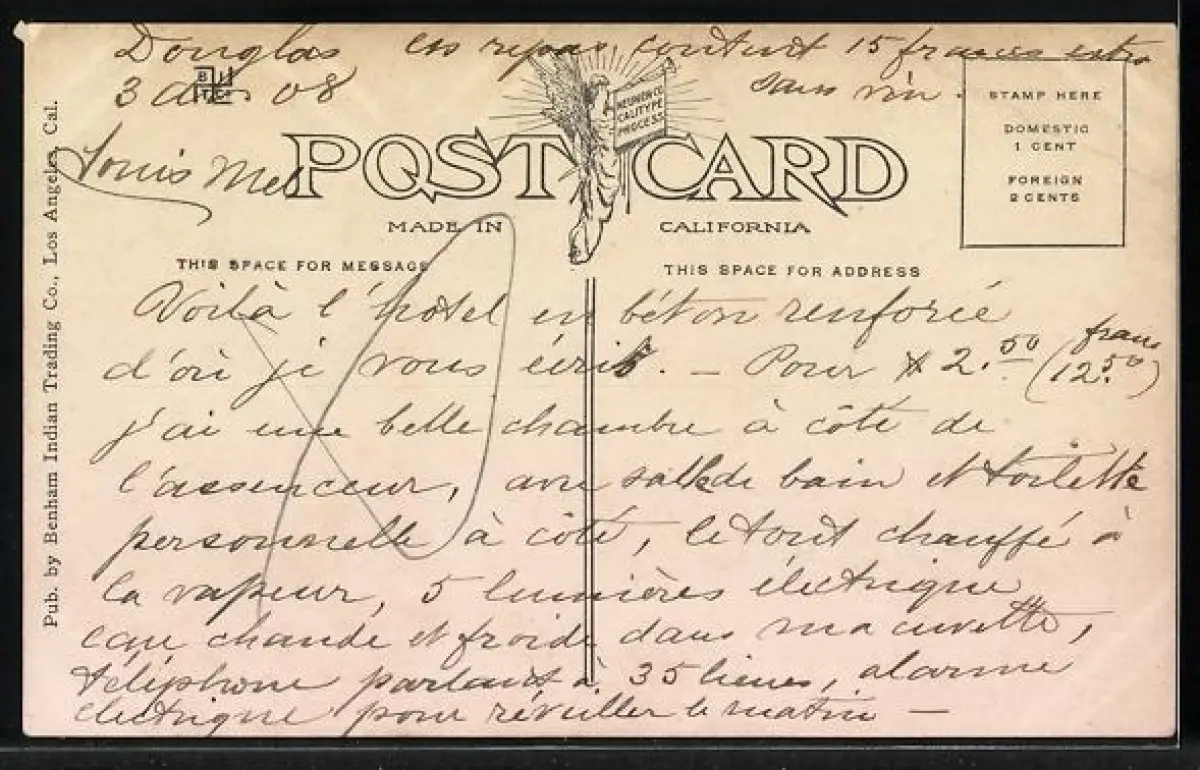 Douglas
3 08
Louis
repas, coutent 15 francs
sans vin.
B I
T C
NEUNER CO.
CALITYPE
PROCESS.
POST CARD
MADE IN CALIFORNIA
STAMP HERE
DOMESTIC
1 CENT
FOREIGN
2 CENTS
THIS SPACE FOR MESSAGE
THIS SPACE FOR ADDRESS
Pub. by Benham Indian Trading Co., Los Angeles, Cal.
Voilà l'hotel en béton renforcé
d'où je vous écris. — Pour $2.50 (francs 12.50)
j'ai une belle chambre à côté de
l'assenceur, avec salle de bain et toilette
personnelle à côté, le tout chauffé à
la vapeur, 5 lumières électrique
eau chaude et froide dans ma cuvette,
téléphone partant à 35 lieues, alarme
électrique pour réveiller le matin —